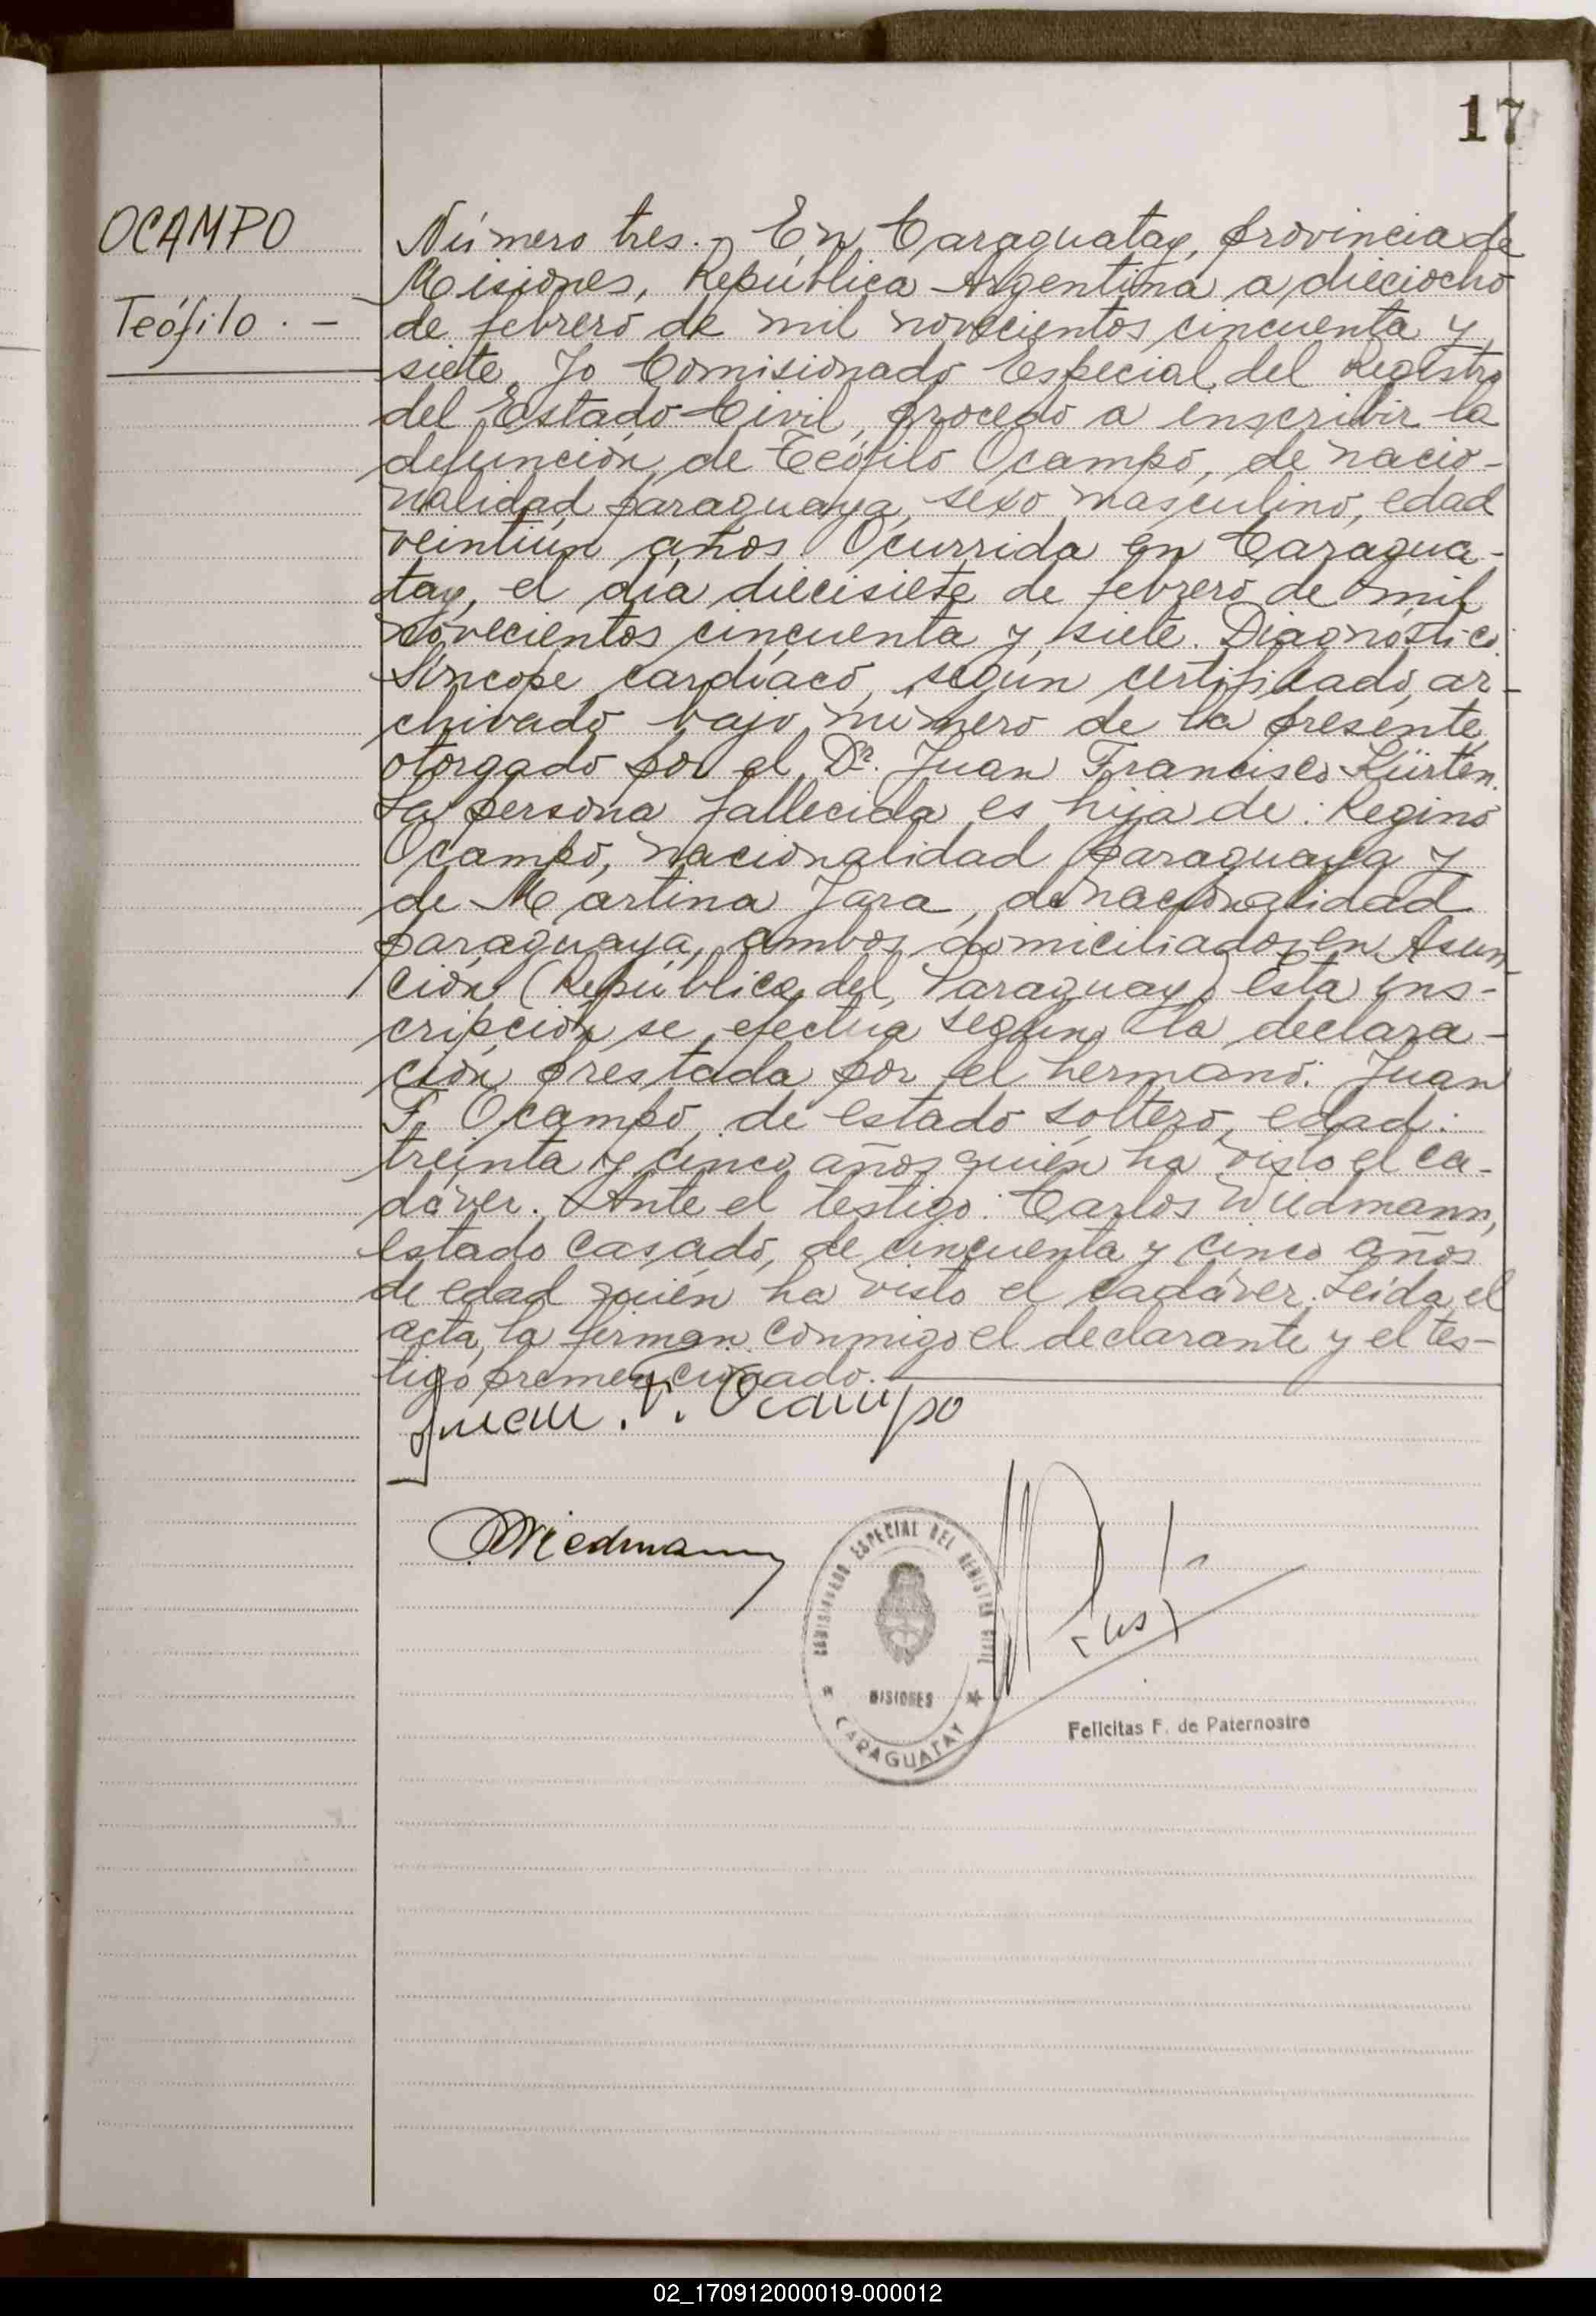 17
OCAMPO
Teófilo . —
Número tres. - En Caraguatay, provincia de
Misiones, República Argentina a dieciocho
de febrero de mil novecientos cincuenta y
siete. Yo Comisionado Especial del Registro
del Estado Civil, procedo a inscribir la
defunción de Teófilo Ocampo, de nacio-
nalidad paraguaya, sexo masculino, edad
veintiún años. Ocurrida en Caragua-
tay, el día diecisiete de febrero de mil
novecientos cincuenta y siete. Diagnóstico:
Síncope cardíaco, según certificado ar-
chivado bajo número de la presente,
otorgado por el Dr. Juan Francisco Kürten.
La persona fallecida es hija de: Regino
Ocampo, nacionalidad paraguaya y
de Martina Jara, de nacionalidad
paraguaya, ambos domiciliados en Asun-
ción (República del Paraguay) Esta ins-
cripción se efectúa según la declara-
ción prestada por el hermano: Juan
F. Ocampo, de estado soltero, edad:
treinta y cinco años quién ha visto el ca-
dáver. Ante el testigo: Carlos Wiedmann,
estado casado, de cincuenta y cinco años
de edad quién ha visto el cadáver. Leída el
acta, la firman conmigo el declarante y el tes-
tigo premencionado.
Juan . F. Ocampo
CWiedmann
COMISIONADO ESPECIAL DEL REGISTRO CIVIL
MISIONES
CARAGUATAY
Felicitas F. de Paternostro
02_170912000019-000012